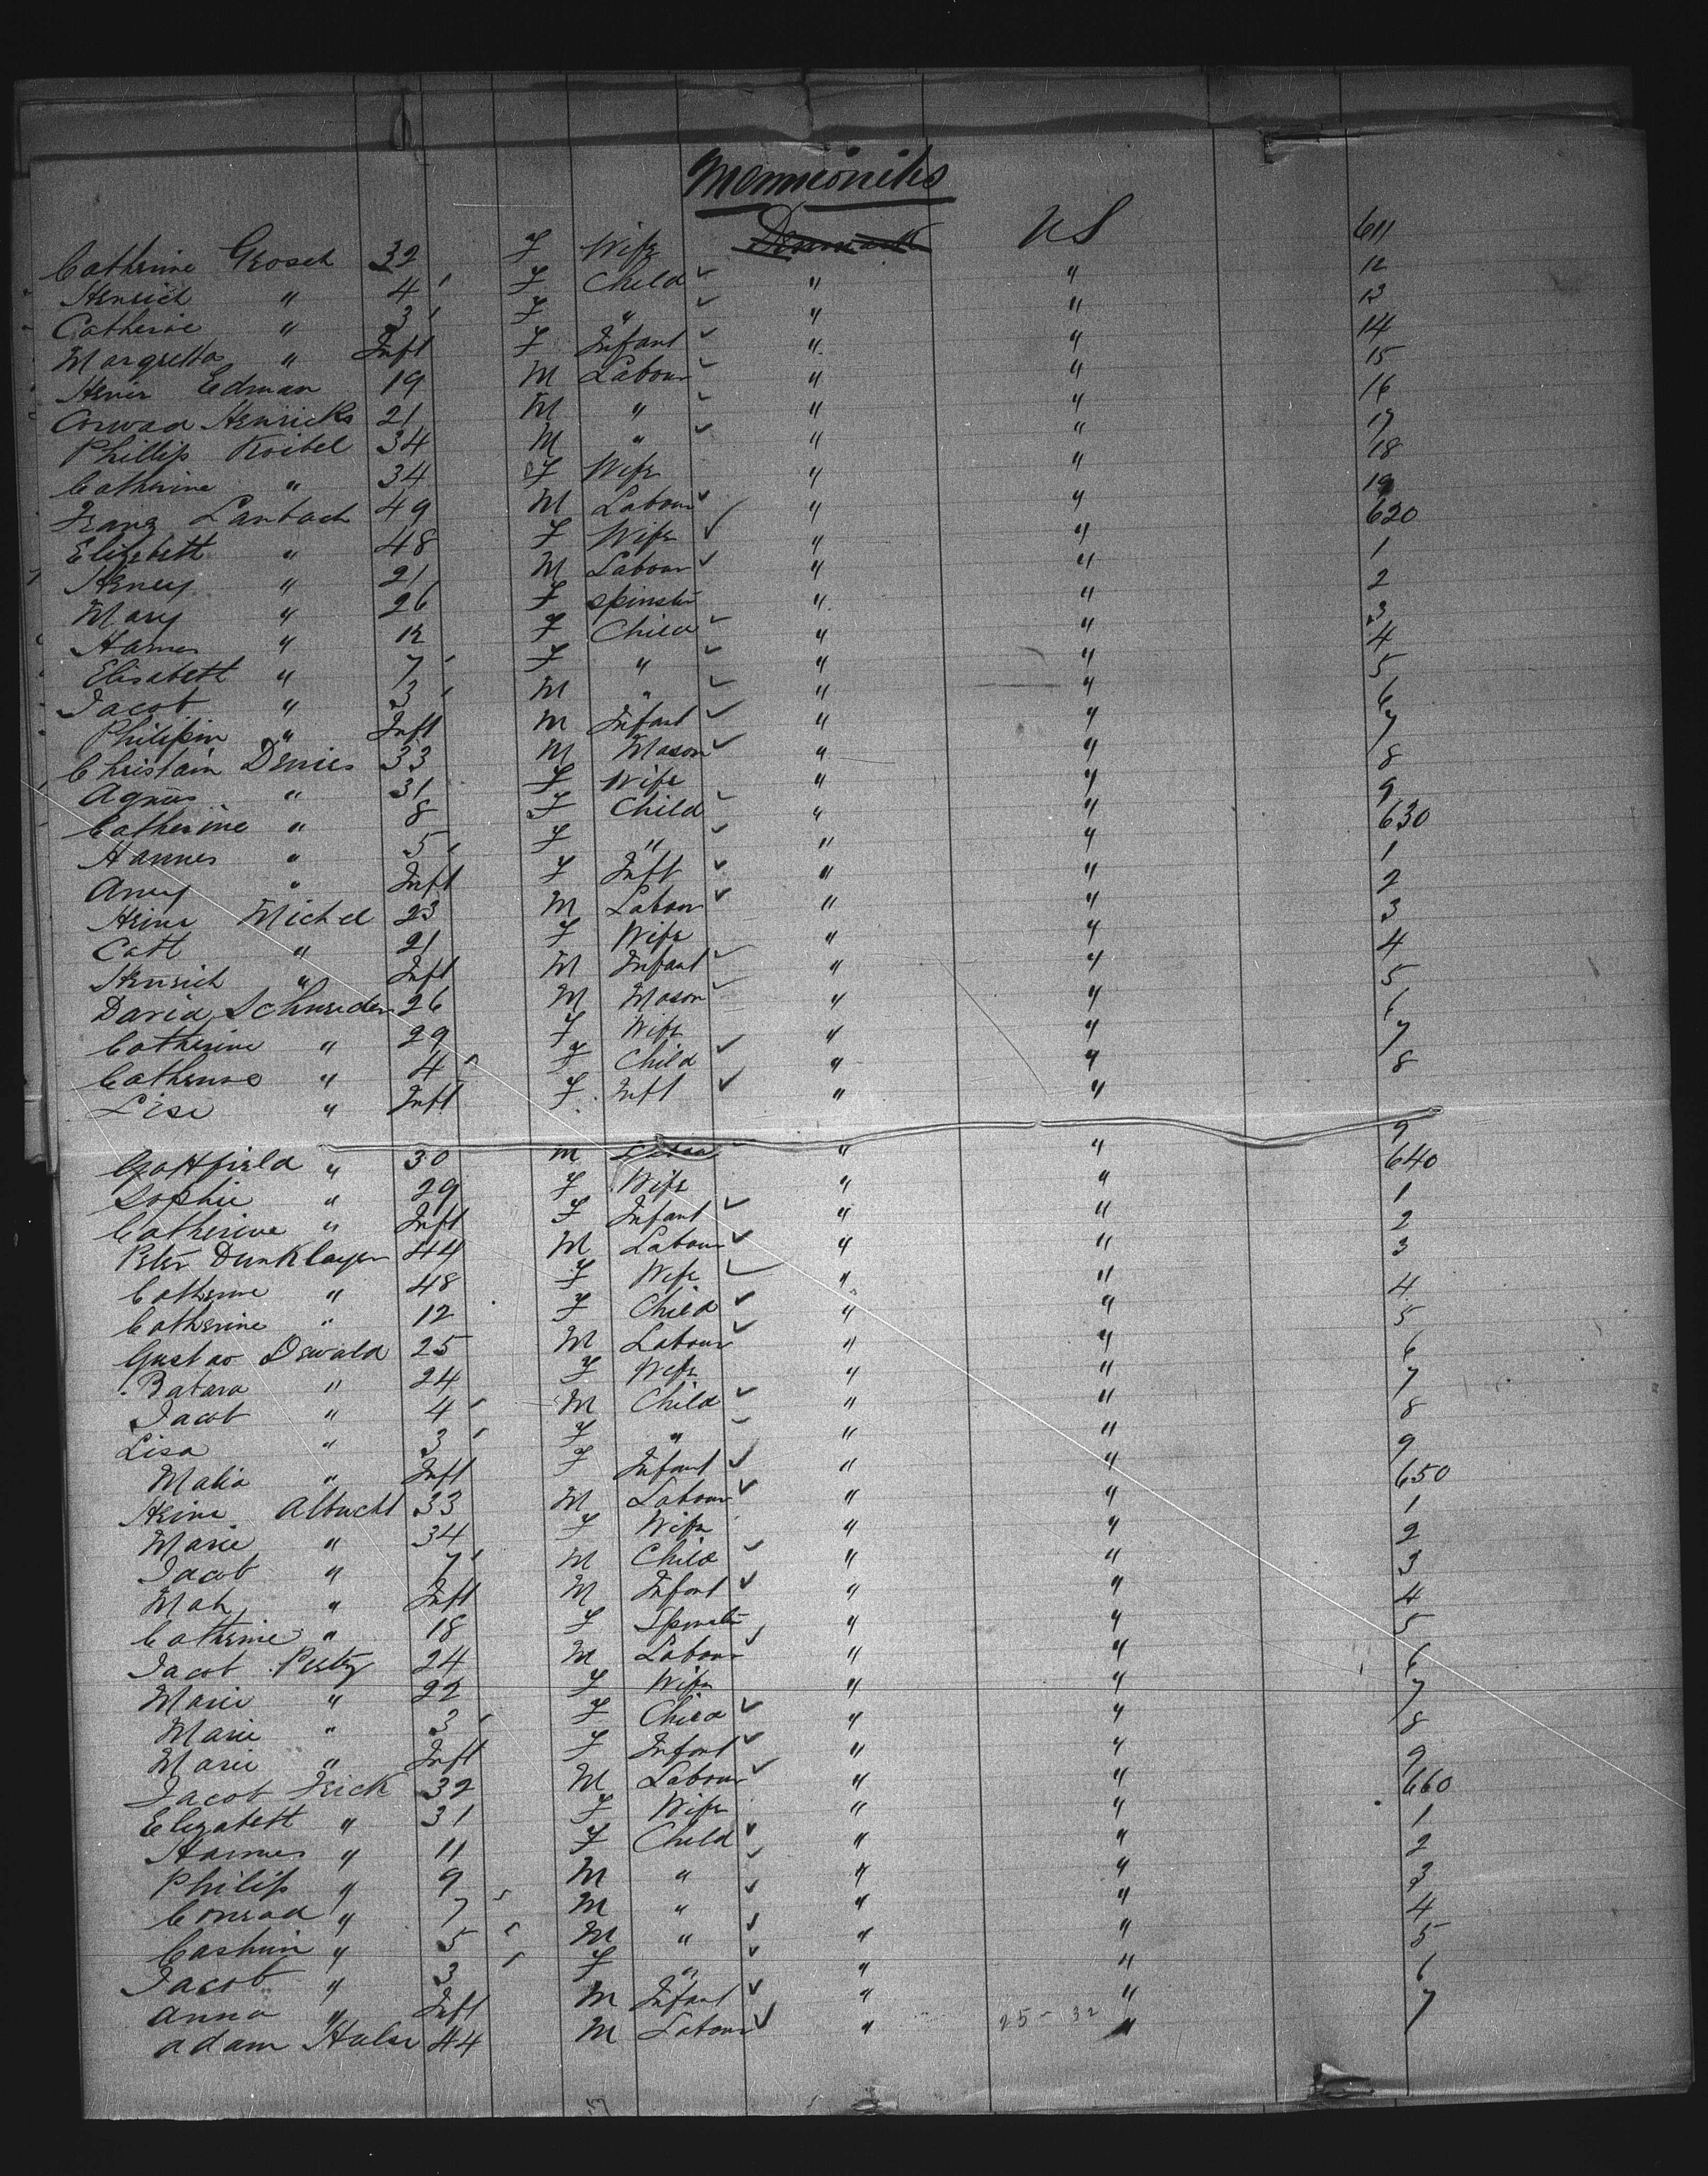 Mennonites
Catherine Grosch 32 F Wife Denmark US 611
Henrich " 4 F Child " " 12
Catherine " 3 F " " " 13
Margretta " Inft F Infant " " 14
Henir Edman 19 M Labour " " 15
Conrad Henricks 21 M " " " 16
Phillip Koibel 34 M " " " 17
Catherine " 34 F Wife " " 18
Franz Lanbach 49 M Labour " " 19
Elizebeth " 48 F Wife " " 620
Henery " 21 M Labour " " 1
Mary " 26 F Spinster " " 2
Hames " 12 F Child " " 3
Elisabeth " 7 F " " " 4
Jacob " 3 M " " " 5
Philipin " Inft M Infant " " 6
Christain Denies 33 M Mason " " 7
Agnus " 31 F Wife " " 8
Catherine " 8 F Child " " 9
Hannes " 5 F " " " 630
Anny " Inft F Inft " " 1
Heinr Michel 23 M Labour " " 2
Cath " 21 F Wife " " 3
Henrich " Inft M Infant " " 4
David Schneider 26 M Mason " " 5
Catherine " 29 F Wife " " 6
Catherine " 4 F Child " " 7
Lise " Inft F Inft " " 8
Gottfield " 30 M Labou " " 9
Sophie " 29 F Wife " " 640
Catherine " Inft F Infant " " 1
Peter Dunklayer 44 M Labour " " 2
Catherine " 48 F Wife " " 3
Catherine " 12 F Child " " 4
Gustav Oswald 25 M Labour " " 5
Babara " 24 F Wife " " 6
Jacob " 4 M Child " " 7
Lisa " 3 F " " " 8
Malia " Inft F Infant " " 9
Heinr Albucht 33 M Labour " " 650
Marie " 34 F Wife " " 1
Jacob " 7 M Child " " 2
Mah " Inft M Infant " " 3
Catherine " 18 F Spinster " " 4
Jacob Pertz 24 M Labour " " 5
Marie " 22 F Wife " " 6
Marie " 3 F Child " " 7
Marie " Inft F Infant " " 8
Jacob Frick 32 M Labour " " 9
Elizabeth " 31 F Wife " " 660
Hannes " 11 F Child " " 1
Philip " 9 M " " " 2
Conrad " 7 M " " " 3
Cashin " 5 M " " " 4
Jacob " 3 F " " " 5
Anna " Inft M Infant " " 6
Adam Huber 44 M Labour " " 7
25 - 32